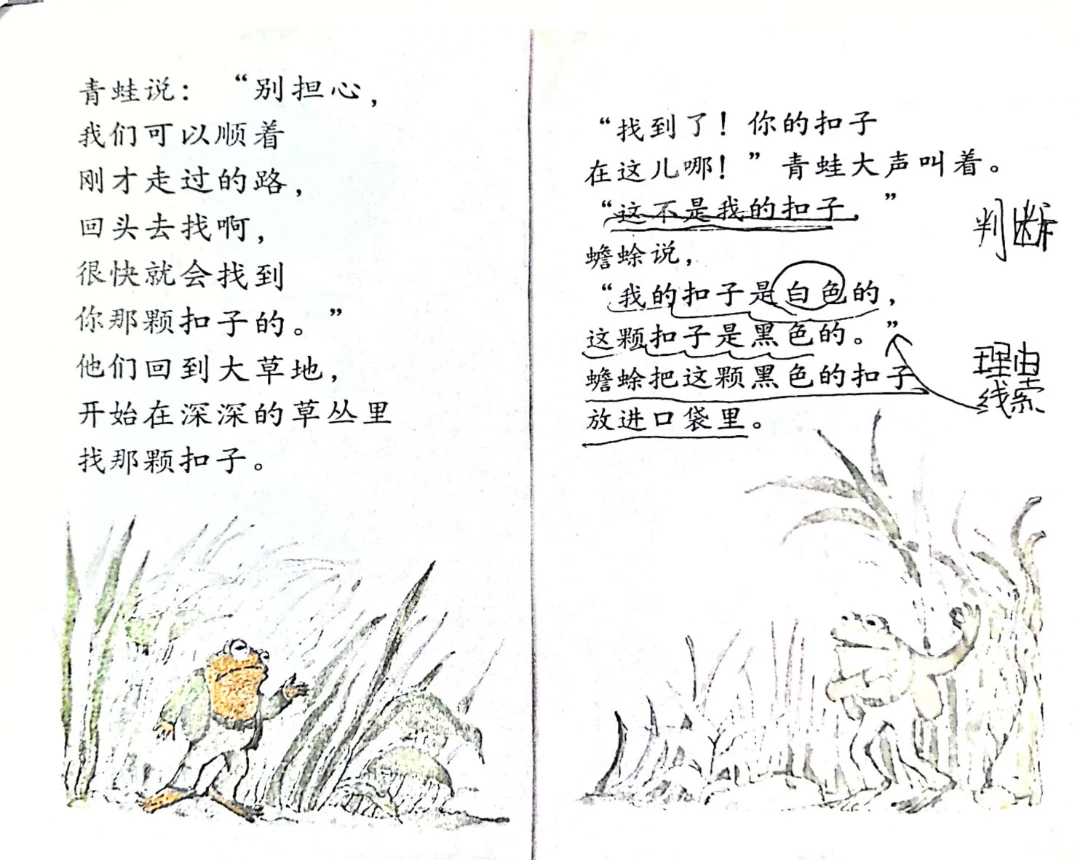 青蛙说：“别担心，
我们可以顺着
刚才走过的路，
回头去找啊，
很快就会找到
你那颗扣子的。”
他们回到大草地，
开始在深深的草丛里
找那颗扣子。
“找到了！你的扣子
在这儿哪！”青蛙大声叫着。
“这不是我的扣子，”
判断
蟾蜍说，
“我的扣子是白色的，
这颗扣子是黑色的。”
理由
蟾蜍把这颗黑色的扣子
线索
放进口袋里。